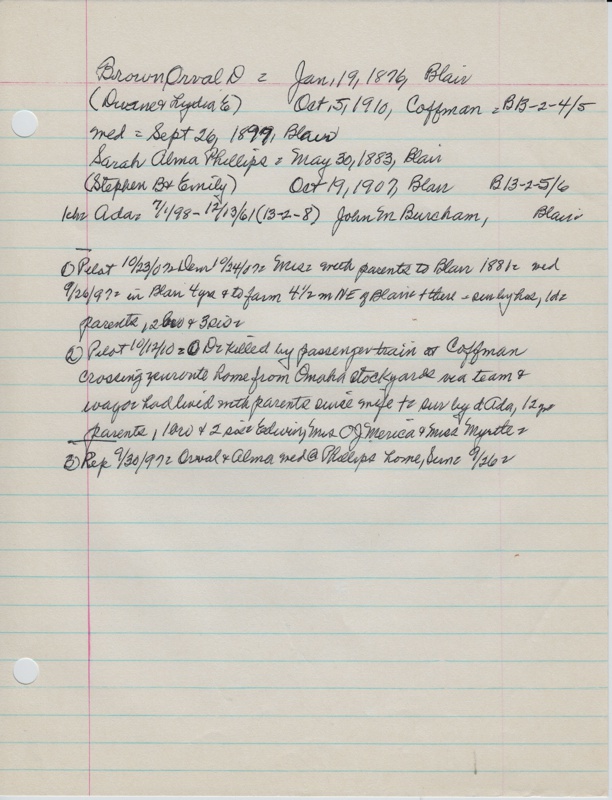 Brown Orval D = Jan, 19, 1876, Blair
(Duane & Lydia E) Oct, 5, 1910, Coffman = B13-2-4/5
wed = Sept 26, 1897, Blair
Sarah Alma Phillips = May 30, 1883, Blair
(Stephen B & Emily) Oct 19, 1907, Blair B13-2-5/6
1chr Ada = 7/1/98 - 12/13/61 (13-2-8) John M Burcham, Blair
1) Pilot 10/23/07 = Dem 10/24/07 = Mis = with parents to Blair 1881 = wed
9/26/97 = in Blair 4yrs & to farm 4 1/2 m NE of Blair & there = sur by hus, 1d =
parents, 2 bro & 3 sis =
2) Pilot 10/12/10 = O D killed by passenger train at Coffman
crossing enroute home from Omaha stockyards via team &
wagon had lived with parents since wife + = sur by d Ada, 12 yr
parents, 1 bro & 2 sis = Edwin, Mrs O J Merica & Miss Myrtle =
3) Rep 9/30/97 = Orval & Alma wed @ Phillips home, Sun = 9/26 =